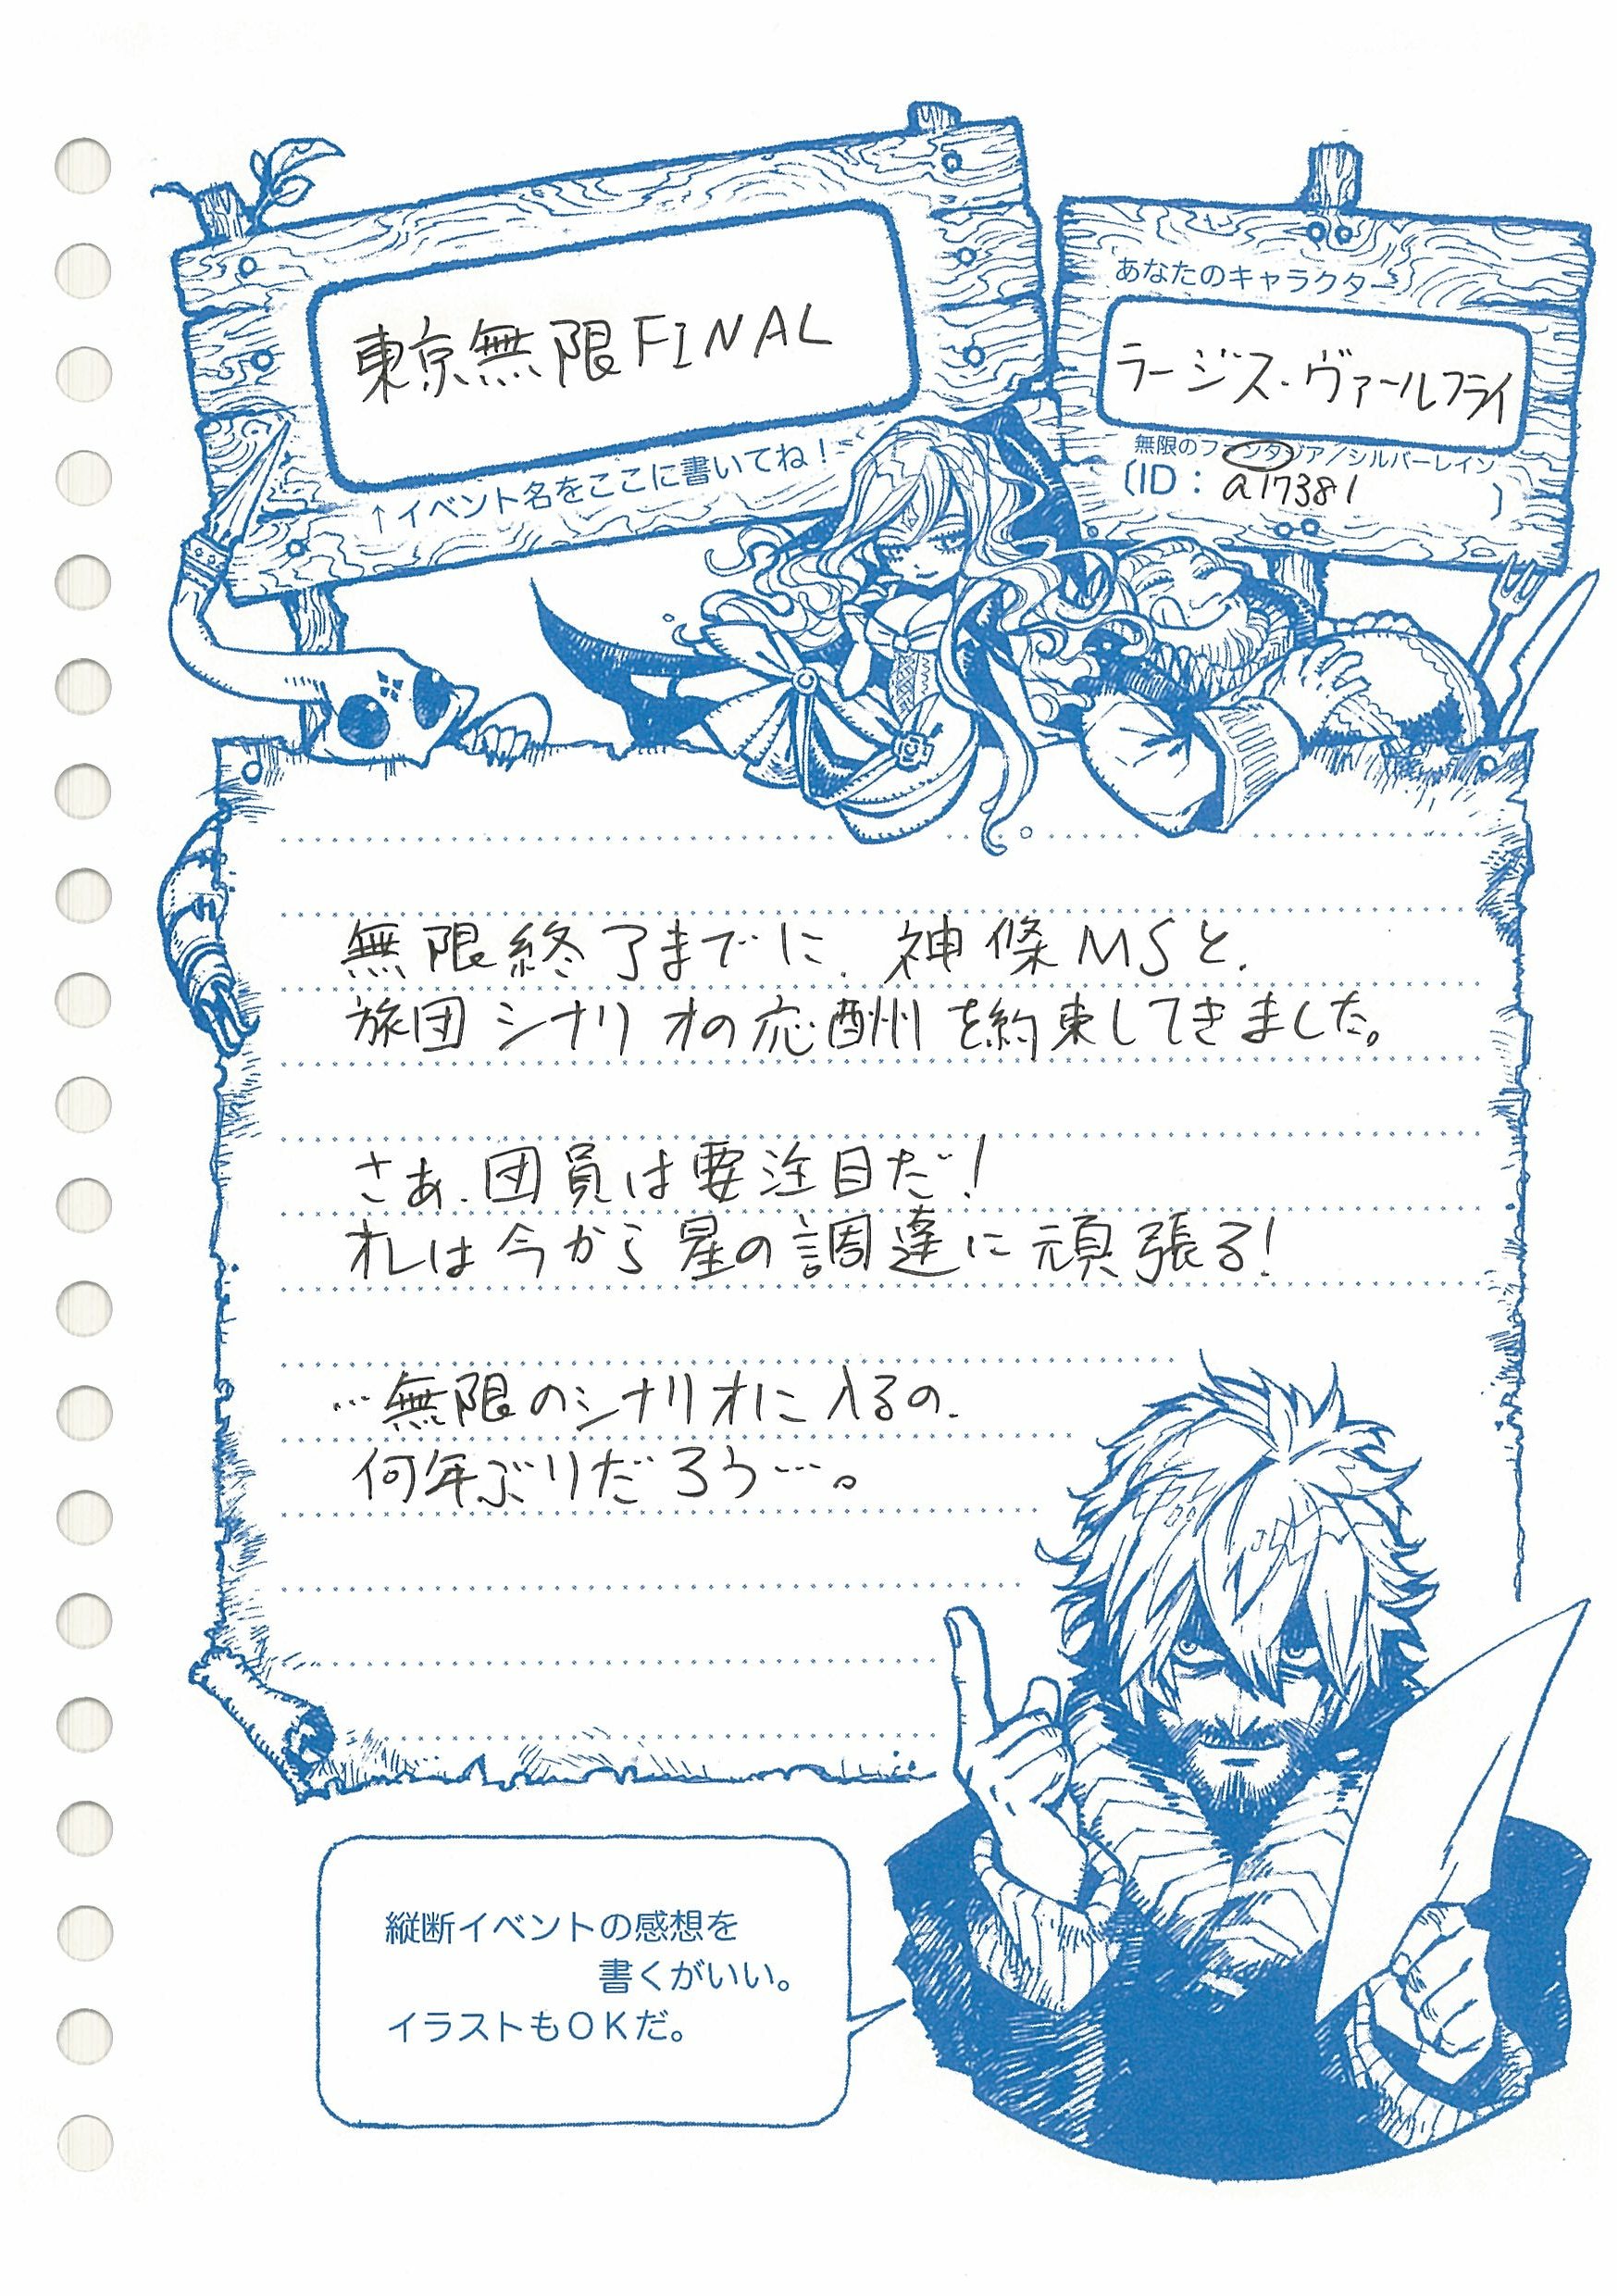 東京無限FINAL
↑イベント名をここに書いてね！
あなたのキャラクター
ラージス・ヴァールフライ
無限のファンタジア／シルバーレイン
（ID：a17381）
無限終了までに、神條MSと、
旅団シナリオの応酬を約束してきました。
さぁ、団員は要注目だ！
オレは今から星の調達に頑張る！
…無限のシナリオに入るの、
何年ぶりだろう…。
縦断イベントの感想を
書くがいい。
イラストもＯＫだ。